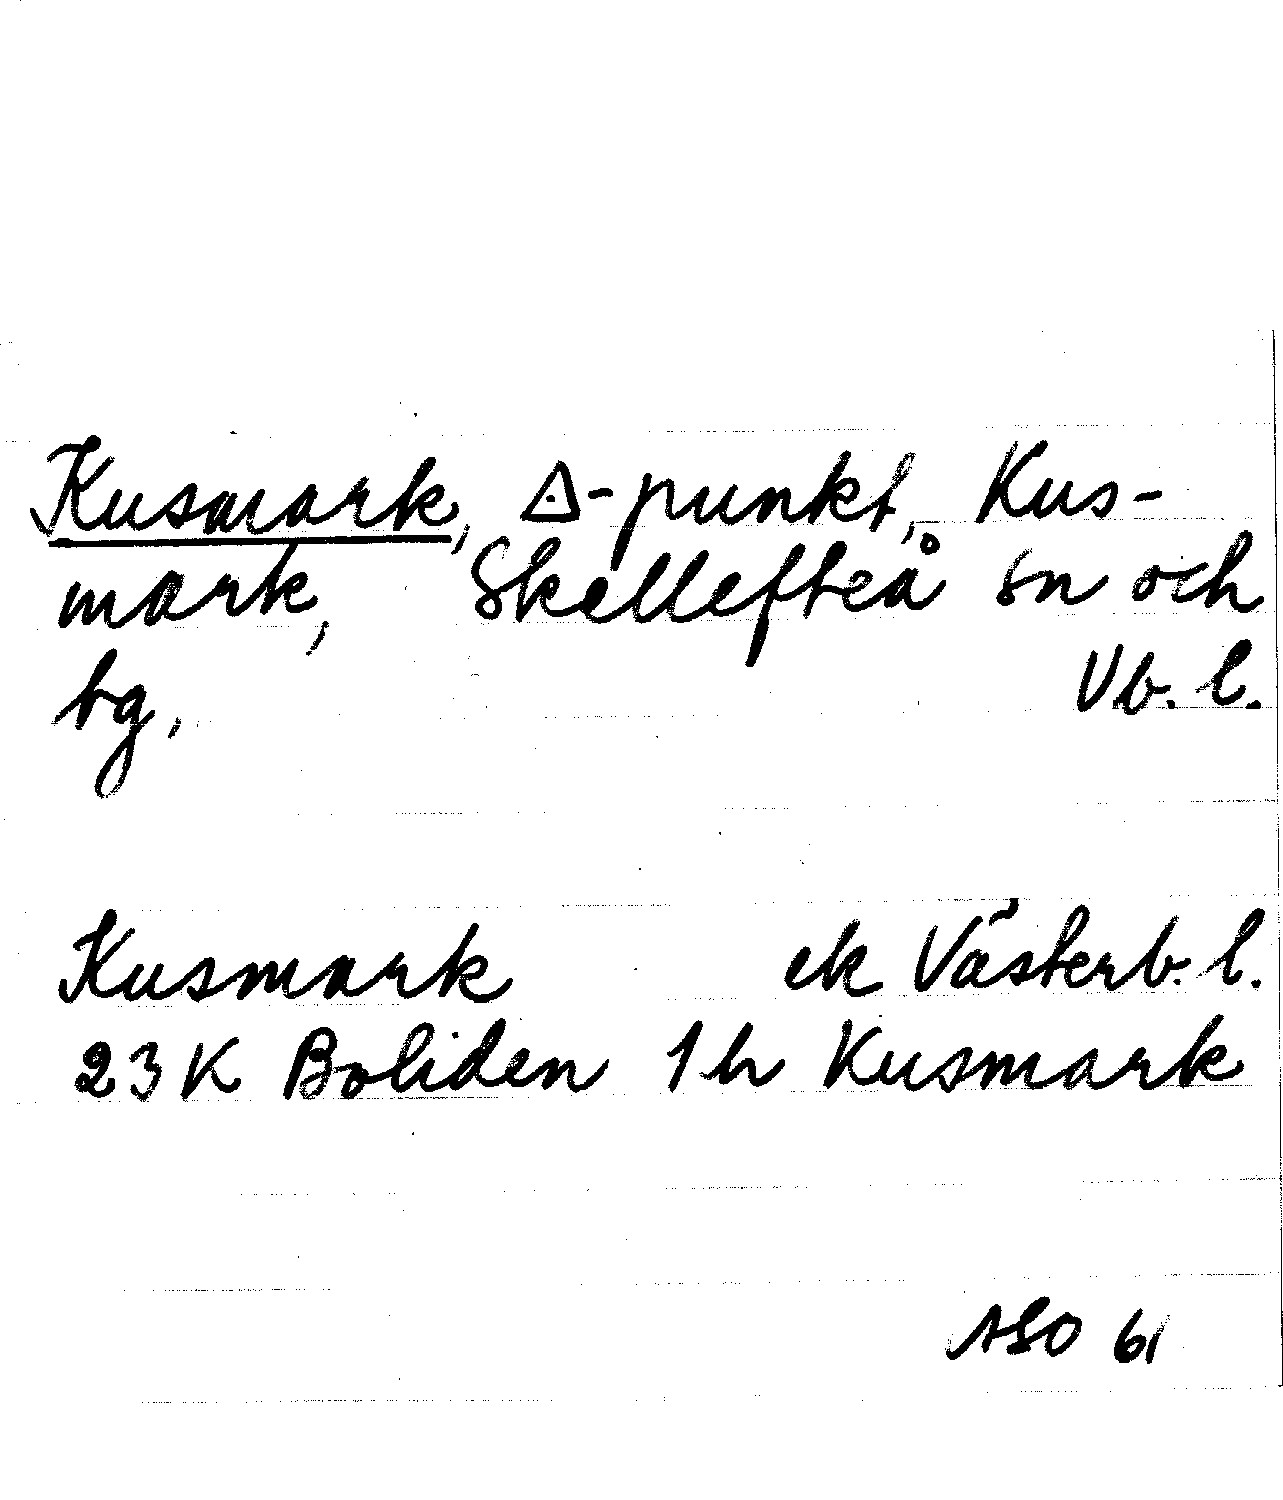 Kusmark, △-punkt, Kus-
mark, Skellefteå sn och
tg, Vb. l.
Kusmark ek Västerb. l.
23K Boliden 1h Kusmark
ASO 61